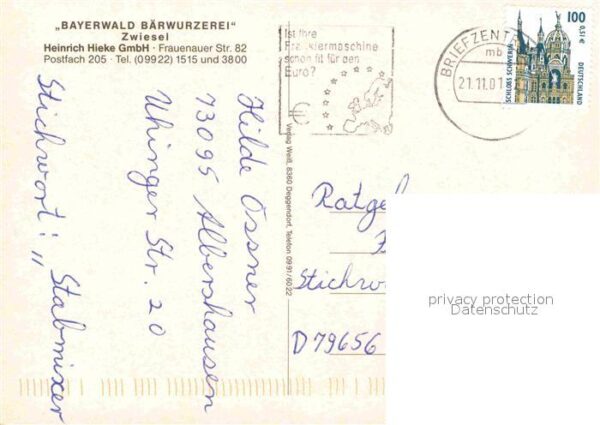 „BAYERWALD BÄRWURZEREI"
Zwiesel
Heinrich Hieke GmbH · Frauenauer Str. 82
Postfach 205 · Tel. (09922) 1515 und 3800
Ist Ihre
Frankiermaschine
schon fit für den
Euro?
BRIEFZENTR
mb
21.11.01
100
0,51€
SCHLOSS SCHWERIN
DEUTSCHLAND
Hilde Ossner
73095 Albershausen
Uhinger Str. 20
Stichwort: „Stabmixer
Verlag Weiß, 8360 Deggendorf, Telefon 0991/6022
Ratge
Stichwo
D 79656
privacy protection
Datenschutz